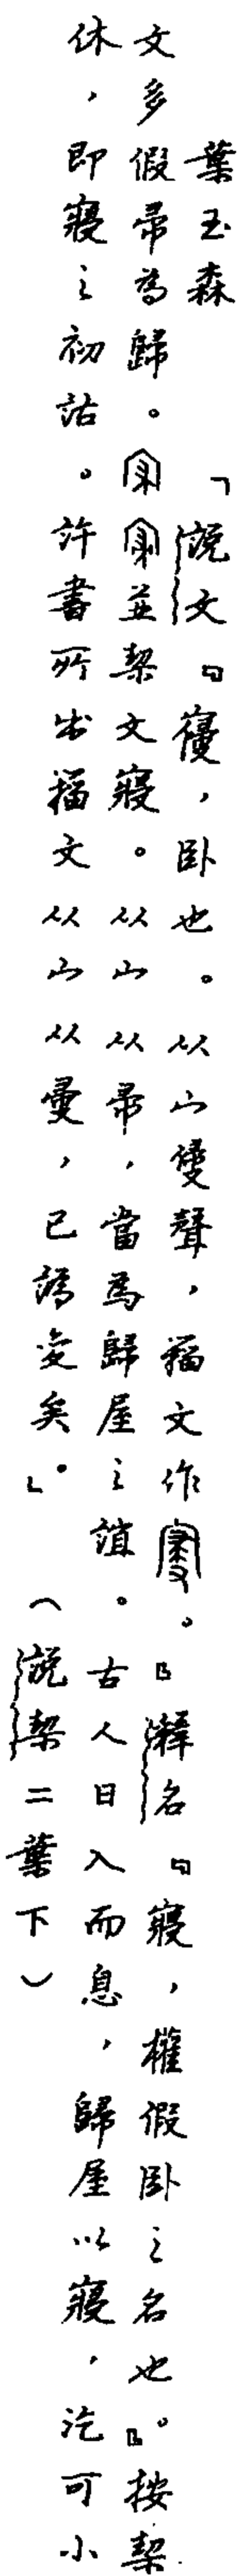 葉玉森　「說文『寑，卧也。从宀𠬶聲，籀文作𡪢。』釋名『寢，權假卧之名也』。按契
文多假帚為歸。並契文寢。从宀从帚，當為歸屋之誼。古人日入而息，歸屋以寢，汔可小
休，即寢之初詁。許書所出籀文从宀从𠬶，已譌變矣。」（說契二葉下）